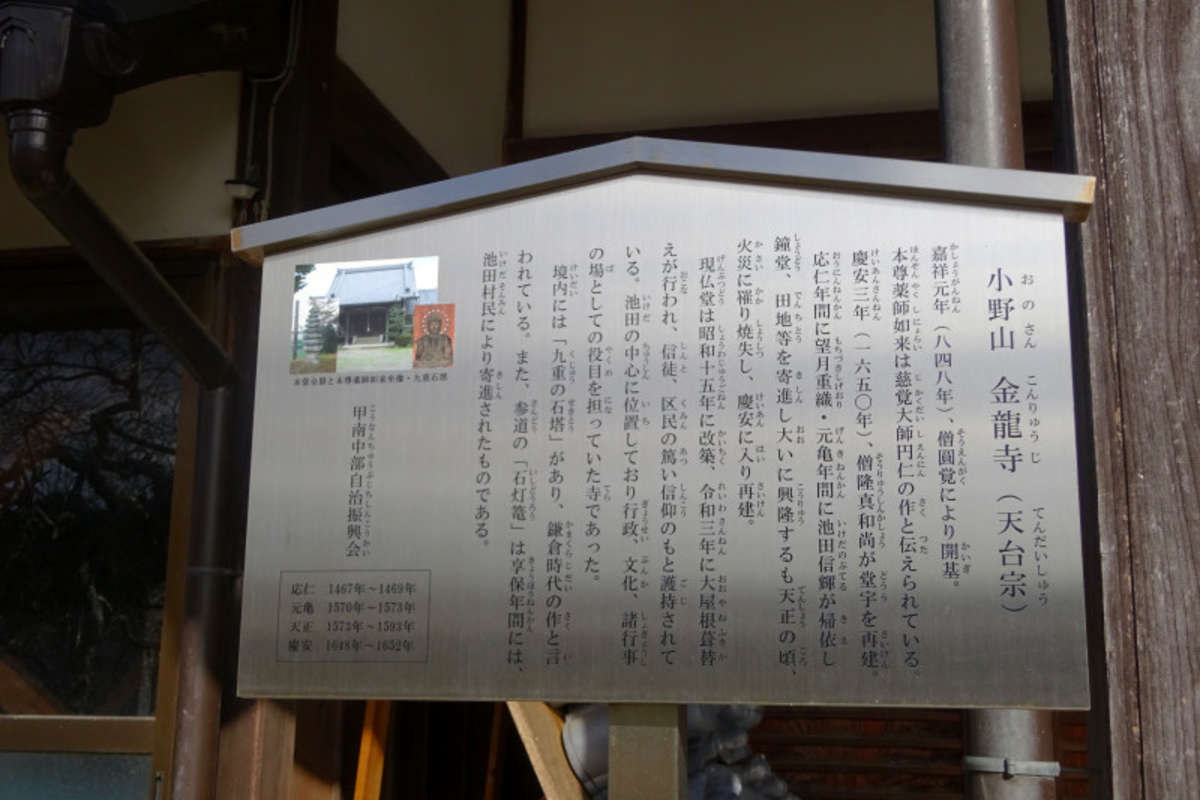 小野山　金龍寺（天台宗）
嘉祥元年（八四八年）、僧圓覚により開基。
本尊薬師如来は慈覚大師円仁の作と伝えられている。
慶安三年（一六五〇年）、僧隆真和尚が堂宇を再建。
応仁年間に望月重織・元亀年間に池田信輝が帰依し
鐘堂、田地等を寄進し大いに興隆するも天正の頃、
火災に罹り焼失し、慶安に入り再建。
現仏堂は昭和十五年に改築、令和三年に大屋根葺替
えが行われ、信徒、区民の篤い信仰のもと護持されて
いる。池田の中心に位置しており行政、文化、諸行事
の場としての役目を担っていた寺であった。
境内には「九重の石塔」があり、鎌倉時代の作と言
われている。また、参道の「石灯篭」は享保年間には、
池田村民により寄進されたものである。
本堂全景と本尊薬師如来坐像・九重石塔
甲南中部自治振興会
応仁　1467年～1469年
元亀　1570年～1573年
天正　1573年～1593年
慶安　1648年～1652年